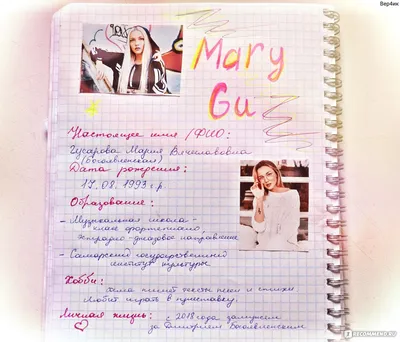 Вер4ик
Mary
Gu
Настоящее имя /ФИО:
Гусарова Мария Вячеславовна
(Боголюбенская)
Дата рождения:
17.08.1993 г.р.
Образование:
- Музыкальная школа -
класс фортепиано,
эстрадно-джазовое направление
- Самарский государственный
институт культуры
Хобби:
сама пишет тексты песен и стихи
Любит играть в приставку.
Личная жизнь:
с 2018 года замужем
за Дмитрием Боголюбенским
IRECOMMEND.RU